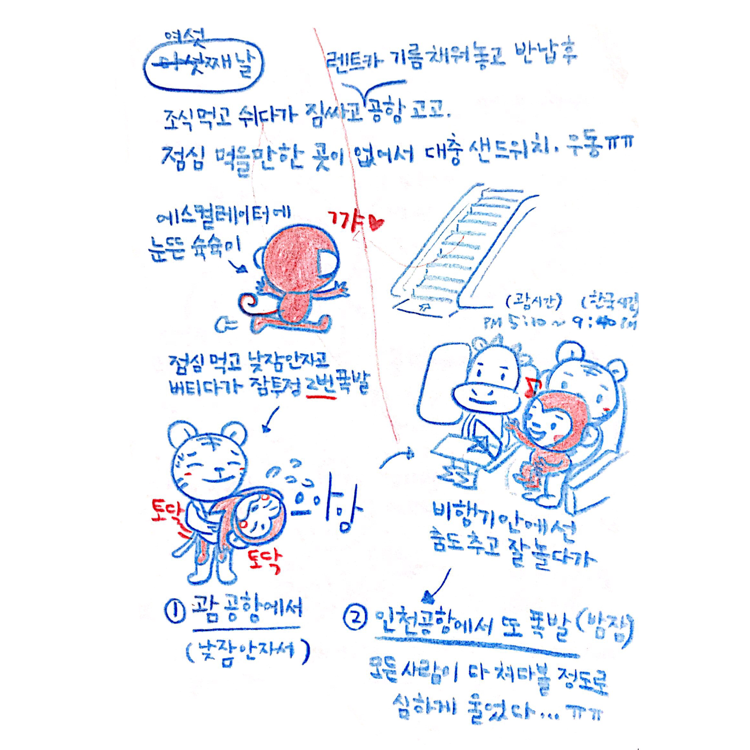 여섯
다섯째날
렌트카 기름채워놓고 반납후
조식먹고 쉬다가 짐싸고 공항 고고.
점심 먹을만한 곳이 없어서 대충 샌드위치. 우동ㅠㅠ
에스컬레이터에
눈뜬 슉슉이
꺄♥
(괌시간) (한국시간)
PM 5:10 ~ 9:40 PM
점심 먹고 낮잠안자고
버티다가 잠투정 2번폭발
으아앙
토닥
토닥
비행기안에선
춤도 추고 잘 놀다가
① 괌 공항에서
(낮잠안자서)
② 인천공항에서 또 폭발 (밤잠)
모든사람이 다 쳐다볼 정도로
심하게 울었다... ㅠㅠ